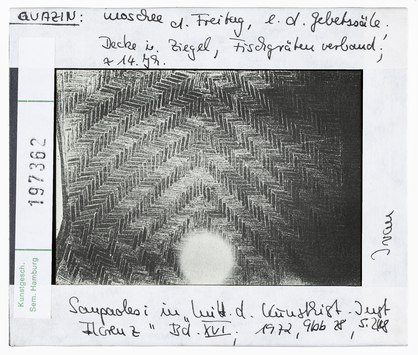 QUAZIN: Moschee d. Freitag, e. d. Gebetssäle,
Decke i. Ziegel, Fischgrätenverband;
14. Jh.
197362
Kunstgesch.
Sem. Hamburg
Iran
Sanpaolesi in "Mitt. d. Kunsthist. Inst
Florenz" Bd. XVI, 1972, Abb 28, S. 248